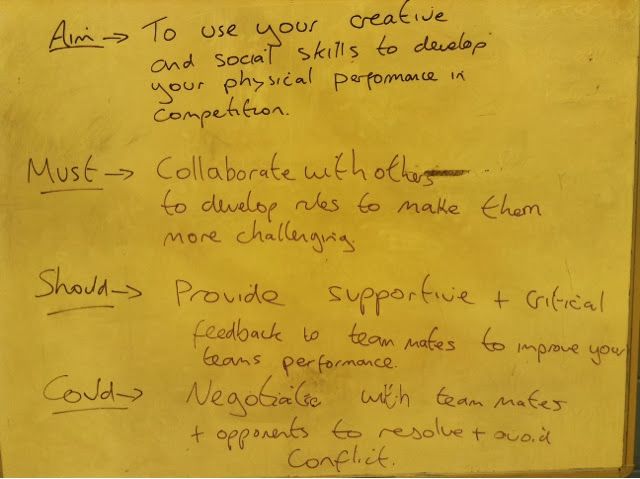 Aim → To use your creative
and social skills to develop
your physical performance in
competition.
Must → Collaborate with others
to develop rules to make them
more challenging.
Should → Provide supportive + critical
feedback to team mates to improve your
teams performance.
Could → Negotiate with team mates
+ opponents to resolve + avoid
Conflict.